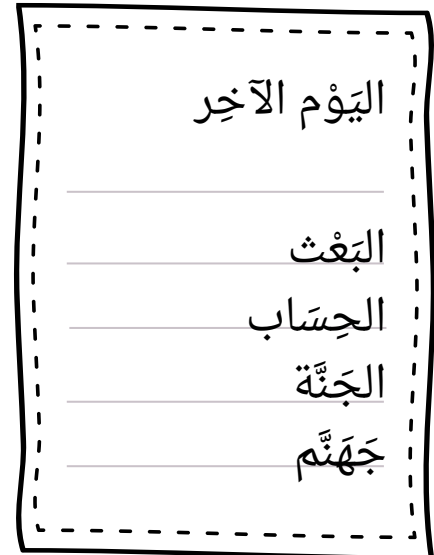 اليَوْم الآخِر
البَعْث
الحِسَاب
الجَنَّة
جَهَنَّم